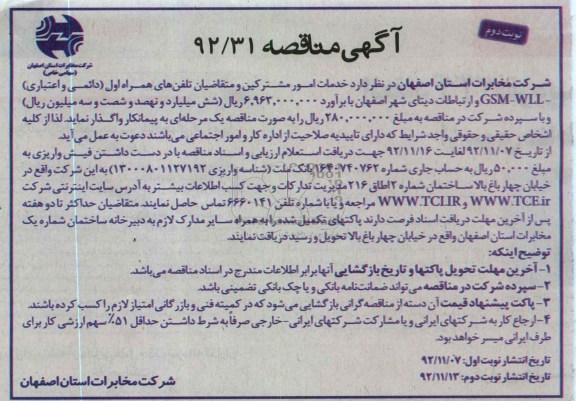 نوبت دوم
آگهی مناقصه ۹۲/۳۱
شرکت مخابرات استان اصفهان
(سهامی خاص)
شرکت مخابرات استان اصفهان در نظر دارد خدمات امور مشترکین و متقاضیان تلفن‌های همراه اول (دائمی و اعتباری)
-GSM-WLL و ارتباطات دیتای شهر اصفهان با برآورد ۶,۹۶۳,۰۰۰,۰۰۰ ریال (شش میلیارد و نهصد و شصت و سه میلیون ریال)
و با سپرده شرکت در مناقصه به مبلغ ۲۸۰,۰۰۰,۰۰۰ ریال را به صورت مناقصه یک مرحله‌ای به پیمانکار واگذار نماید. لذا از کلیه
اشخاص حقیقی و حقوقی واجد شرایط که دارای تاییدیه صلاحیت از اداره کار و امور اجتماعی می‌باشند دعوت به عمل می‌آید.
از تاریخ ۹۲/۱۱/۰۷ لغایت ۹۲/۱۱/۱۶ جهت دریافت استعلام ارزیابی و اسناد مناقصه با در دست داشتن فیش واریزی به
مبلغ ۵۰,۰۰۰ ریال به حساب جاری شماره بانک ملت (شناسه واریزی ۱۳۰۰۰۸۰۱۱۲۷۱۹۲) به آدرس واقع در
خیابان چهارباغ بالا ساختمان شماره ۲ اطاق ۲۱۶ مدیریت تدارکات و جهت کسب اطلاعات بیشتر به آدرس سایت اینترنتی شرکت
WWW.TCE.ir و WWW.TCI.IR مراجعه و یا با شماره تلفن ۶۶۶۰۱۴۱ تماس حاصل نمایند. متقاضیان حداکثر تا دو هفته
پس از آخرین مهلت دریافت اسناد فرصت دارند پاکتهای تکمیل شده را به همراه سایر مدارک لازم به دبیرخانه ساختمان شماره یک
مخابرات استان اصفهان واقع در خیابان چهارباغ بالا تحویل و رسید دریافت نمایند.
توضیح اینکه:
۱- آخرین مهلت تحویل پاکتها و تاریخ بازگشایی آنها برابر اطلاعات مندرج در اسناد مناقصه می‌باشد.
۲- سپرده شرکت در مناقصه می‌تواند ضمانت‌نامه بانکی و یا چک بانکی تضمینی باشد.
۳- پاکت پیشنهاد قیمت آن دسته از مناقصه گرانی بازگشایی می‌شود که در کمیته فنی و بازرگانی امتیاز لازم را کسب کرده باشند.
۴- ارجاع کار به شرکتهای ایرانی و یا مشارکت شرکتهای ایرانی-خارجی صرفاً به شرط داشتن حداقل ۵۱٪ سهم ارزشی کار برای
طرف ایرانی میسر خواهد بود.
تاریخ انتشار نوبت اول: ۹۲/۱۱/۰۷
تاریخ انتشار نوبت دوم: ۹۲/۱۱/۱۳
شرکت مخابرات استان اصفهان